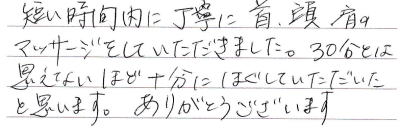 短い時間内に丁寧に首、頭、肩の
マッサージをしていただきました。30分とは
思えないほど十分にほぐしていただいた
と思います。ありがとうございます